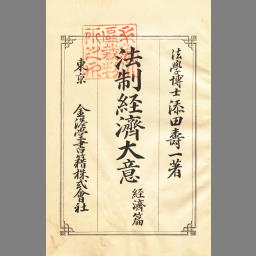 法學博士 添田壽一著
法制經濟大意
經濟篇
東京 金港堂書籍株式會社